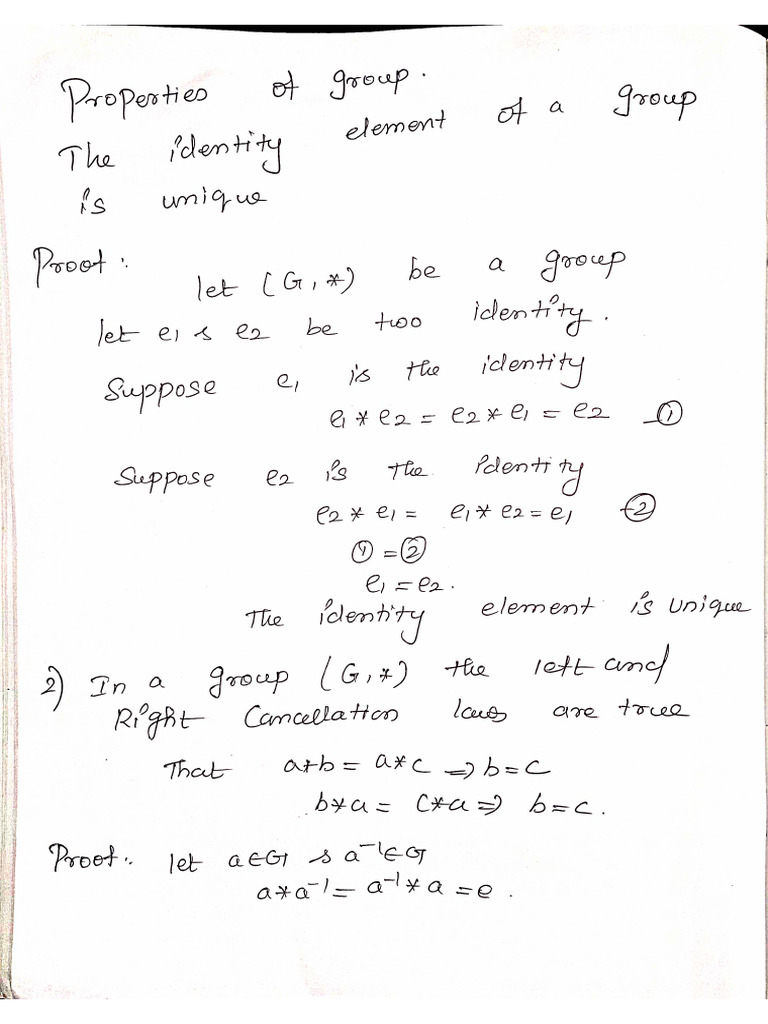 Properties of group.
The identity element of a group
is unique
Proof:
let (G, *) be a group
let e1 & e2 be two identity.
Suppose e1 is the identity
e1 * e2 = e2 * e1 = e2 —①
Suppose e2 is the identity
e2 * e1 = e1 * e2 = e1 —②
① = ②
e1 = e2.
The identity element is unique
2) In a group (G, *) the left and
Right Cancellation laws are true
That a*b = a*c => b=c
b*a = c*a => b=c.
Proof: let a∈G & a⁻¹∈G
a*a⁻¹ = a⁻¹*a = e.